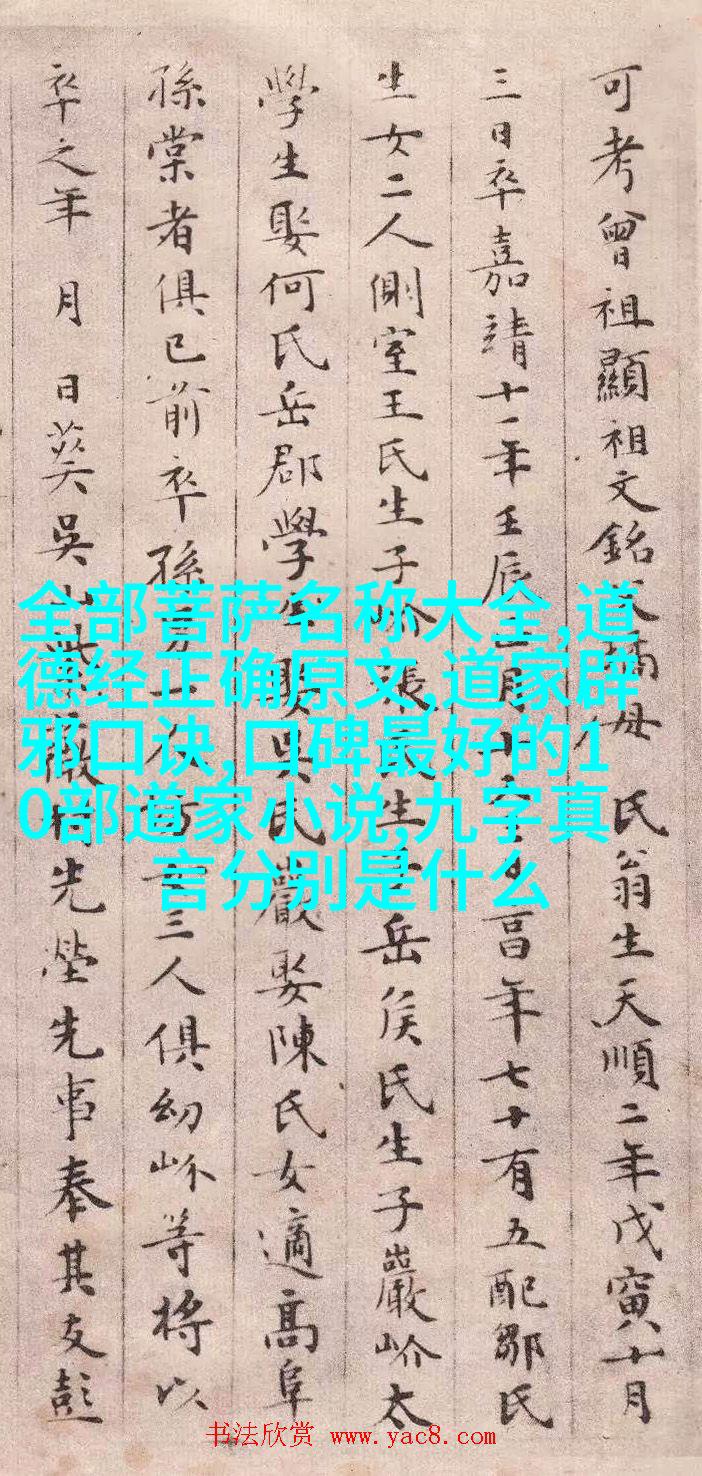 可考曾祖顯祖文銘 母 氏翁生天順二年戊寅十月
三日卒嘉靖十一年壬辰 月十 年七十有五配鄒氏
生女二人側室王氏生子 張 生 岳侯氏生子巖岕太
學生娶何氏岳郡學 吳氏巖娶陳氏女適高阜
孫棠者俱已前卒孫男 三人俱幼岕等將以
卒之年 月 日葬吳山 先塋先事奉其友彭
全部菩萨名称大全,道
德经正确原文,道家辟
邪口诀,口碑最好的1
0部道家小说,九字真
言分别是什么
书法欣赏 www.yac8.com